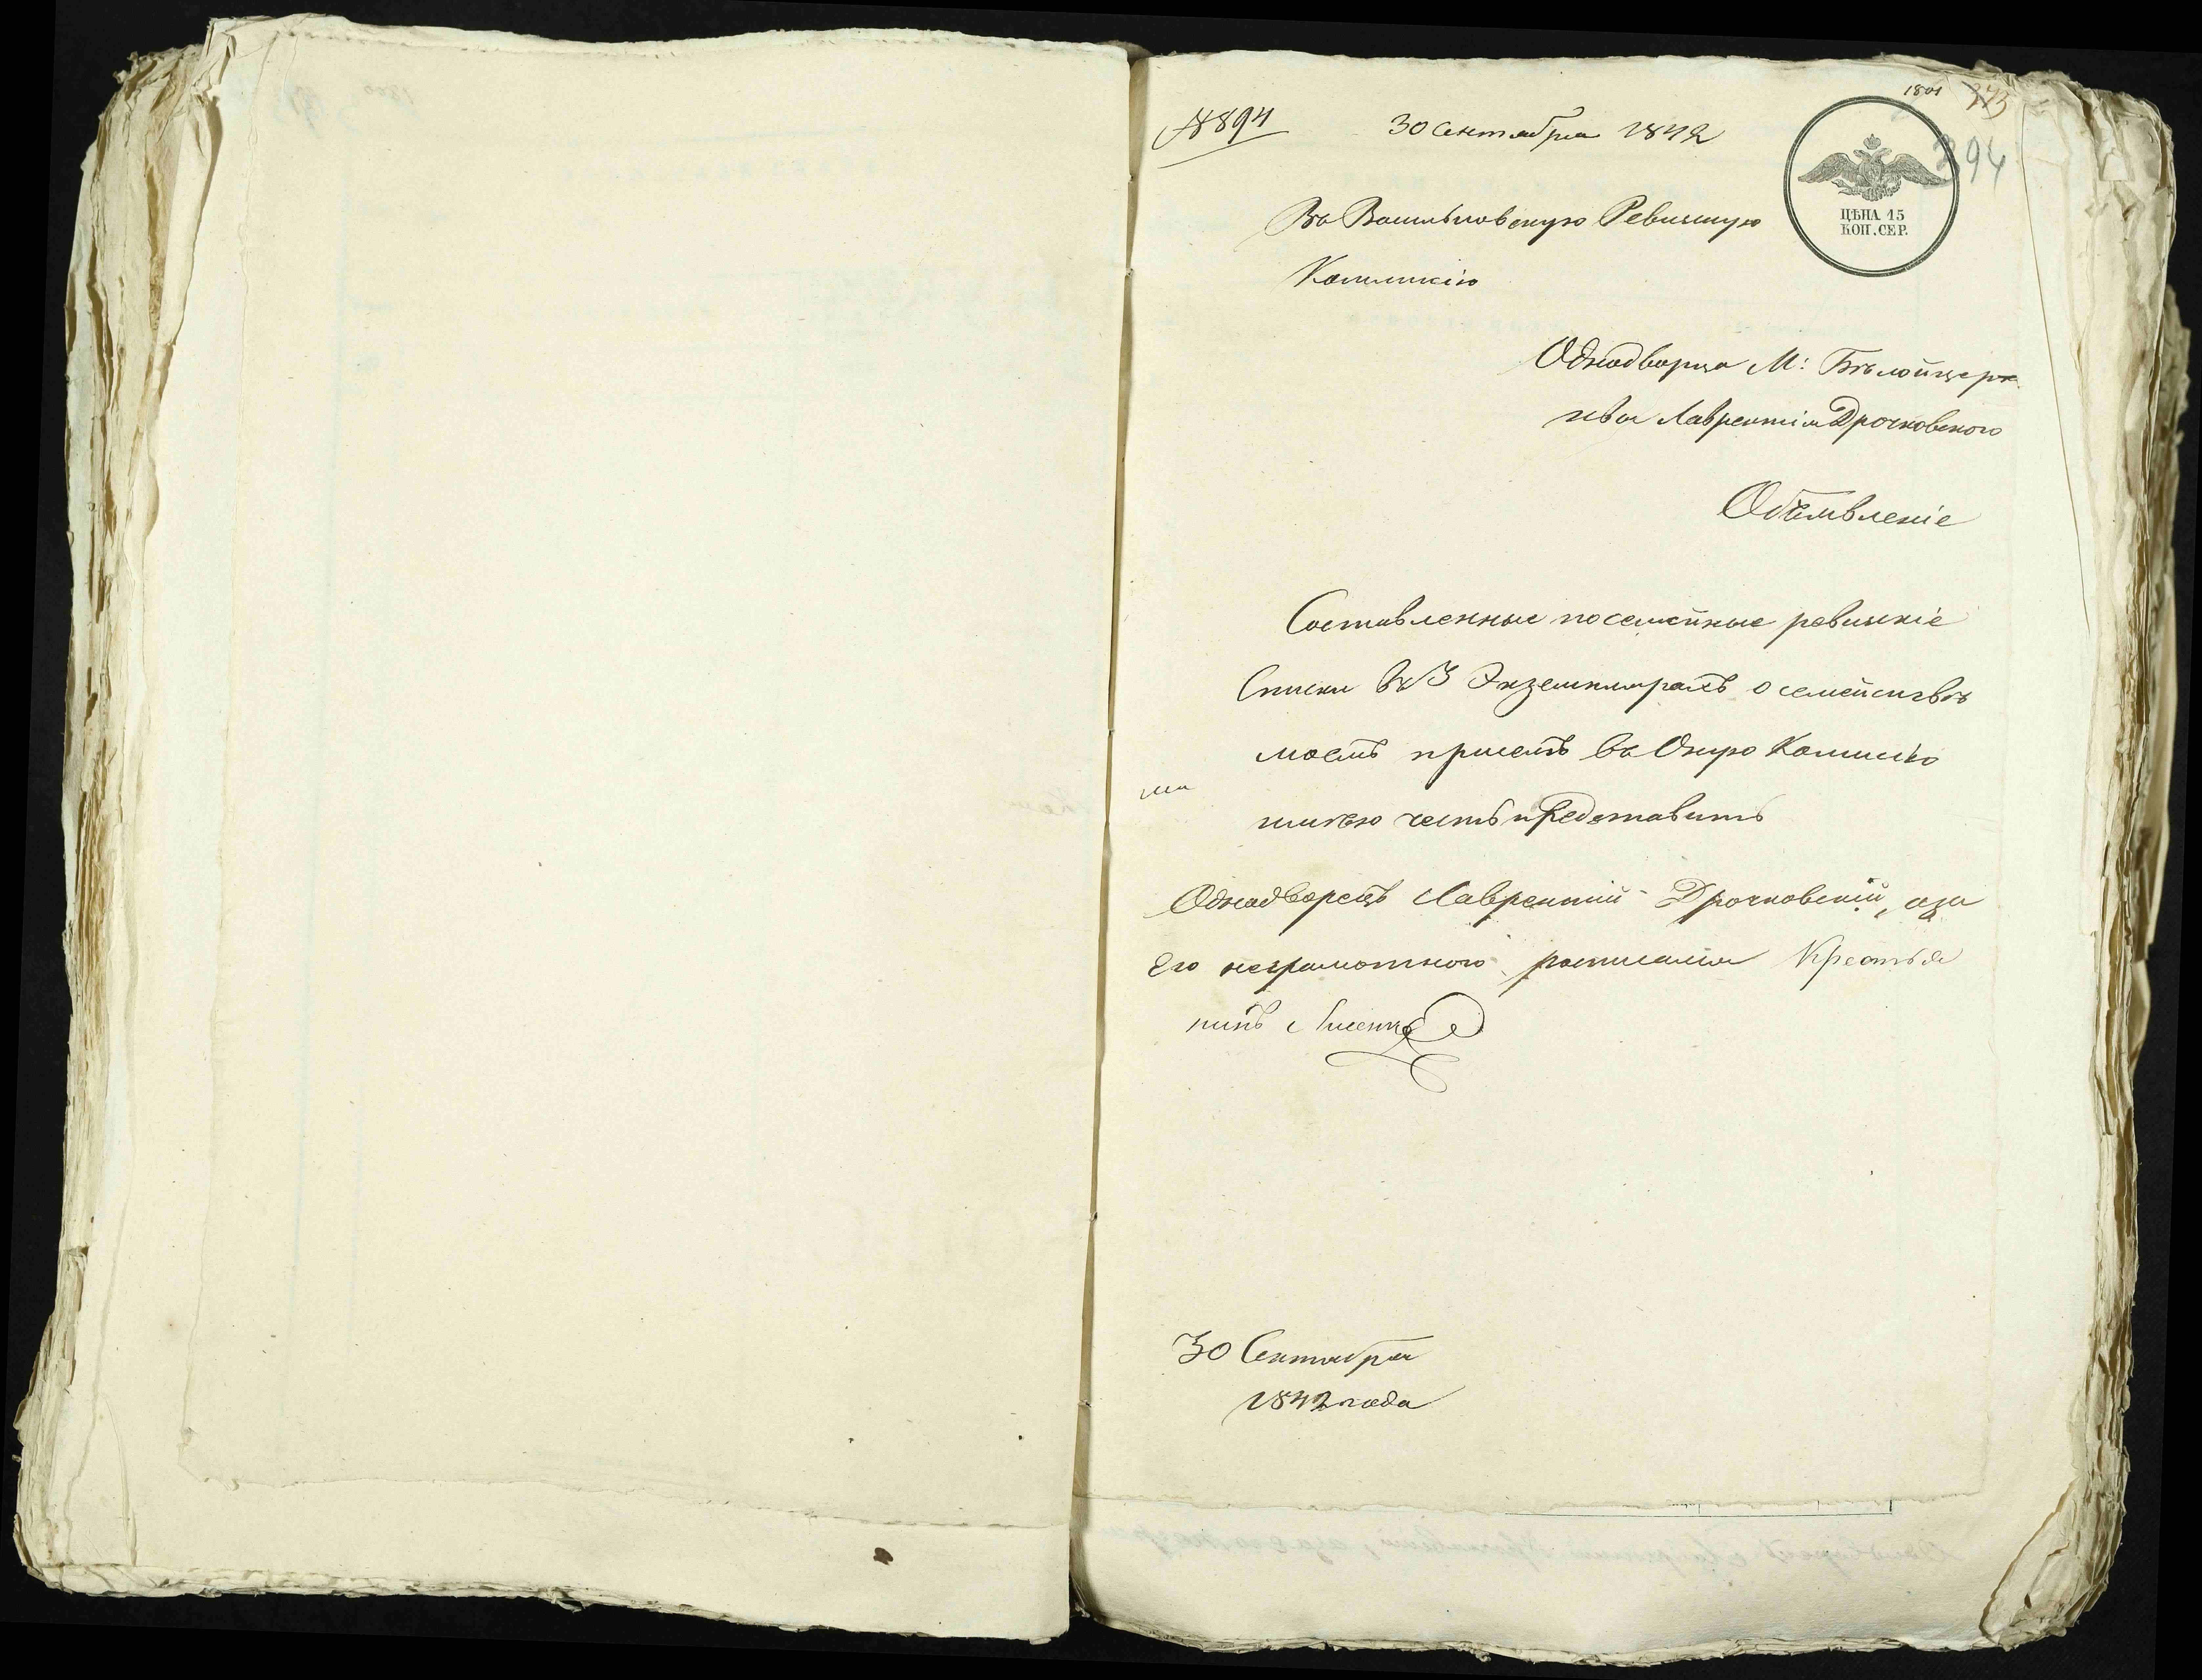 1801 273
№ 894 30 Сентября 1842
394
ЦѢНА 15
КОП. СЕР.
Въ Васильковскую Ревизкую
Комиссію
Однодворца М: Бѣлойцерк
квы Лаврентія Дрочковского
Объявленіе
Составленные посемейные ревизкіе
Списки въ 3 Экземплярахъ о семействѣ
моемъ при семъ въ Оную Комисію
имѣю честь представить
Однодворецъ Лаврентій Дрочковскій, аза
Его неграмотного росписался Крестья
нинъ Лисенко
30 Сентября
1842 года